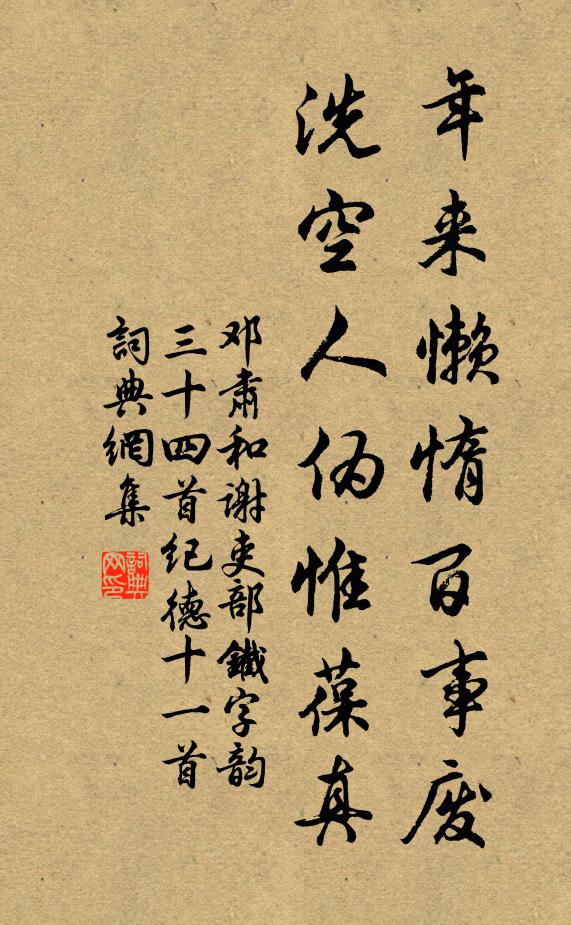 年来懒惰百事废
洗空人伪惟葆真
邓肃和谢吏部鐵字韵
三十四首纪德十一首
詞典網集
詞典網印